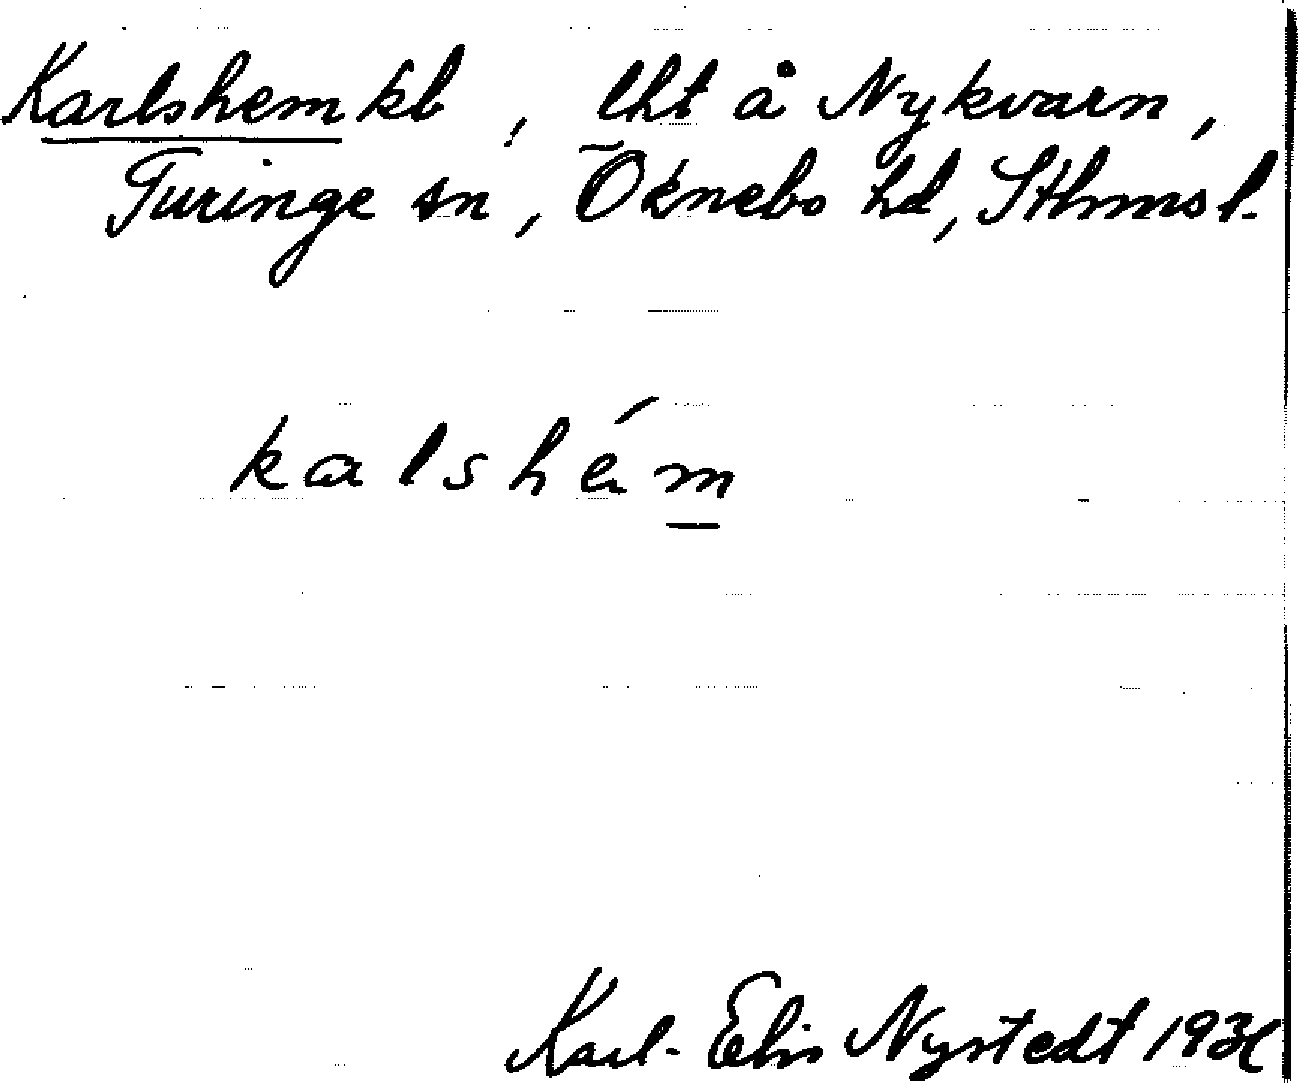 Karlshem kb, lht å Nykvarn,
Turinge sn, Öknebo hd, Sthms l.
kalshém
Karl-Elis Nystedt